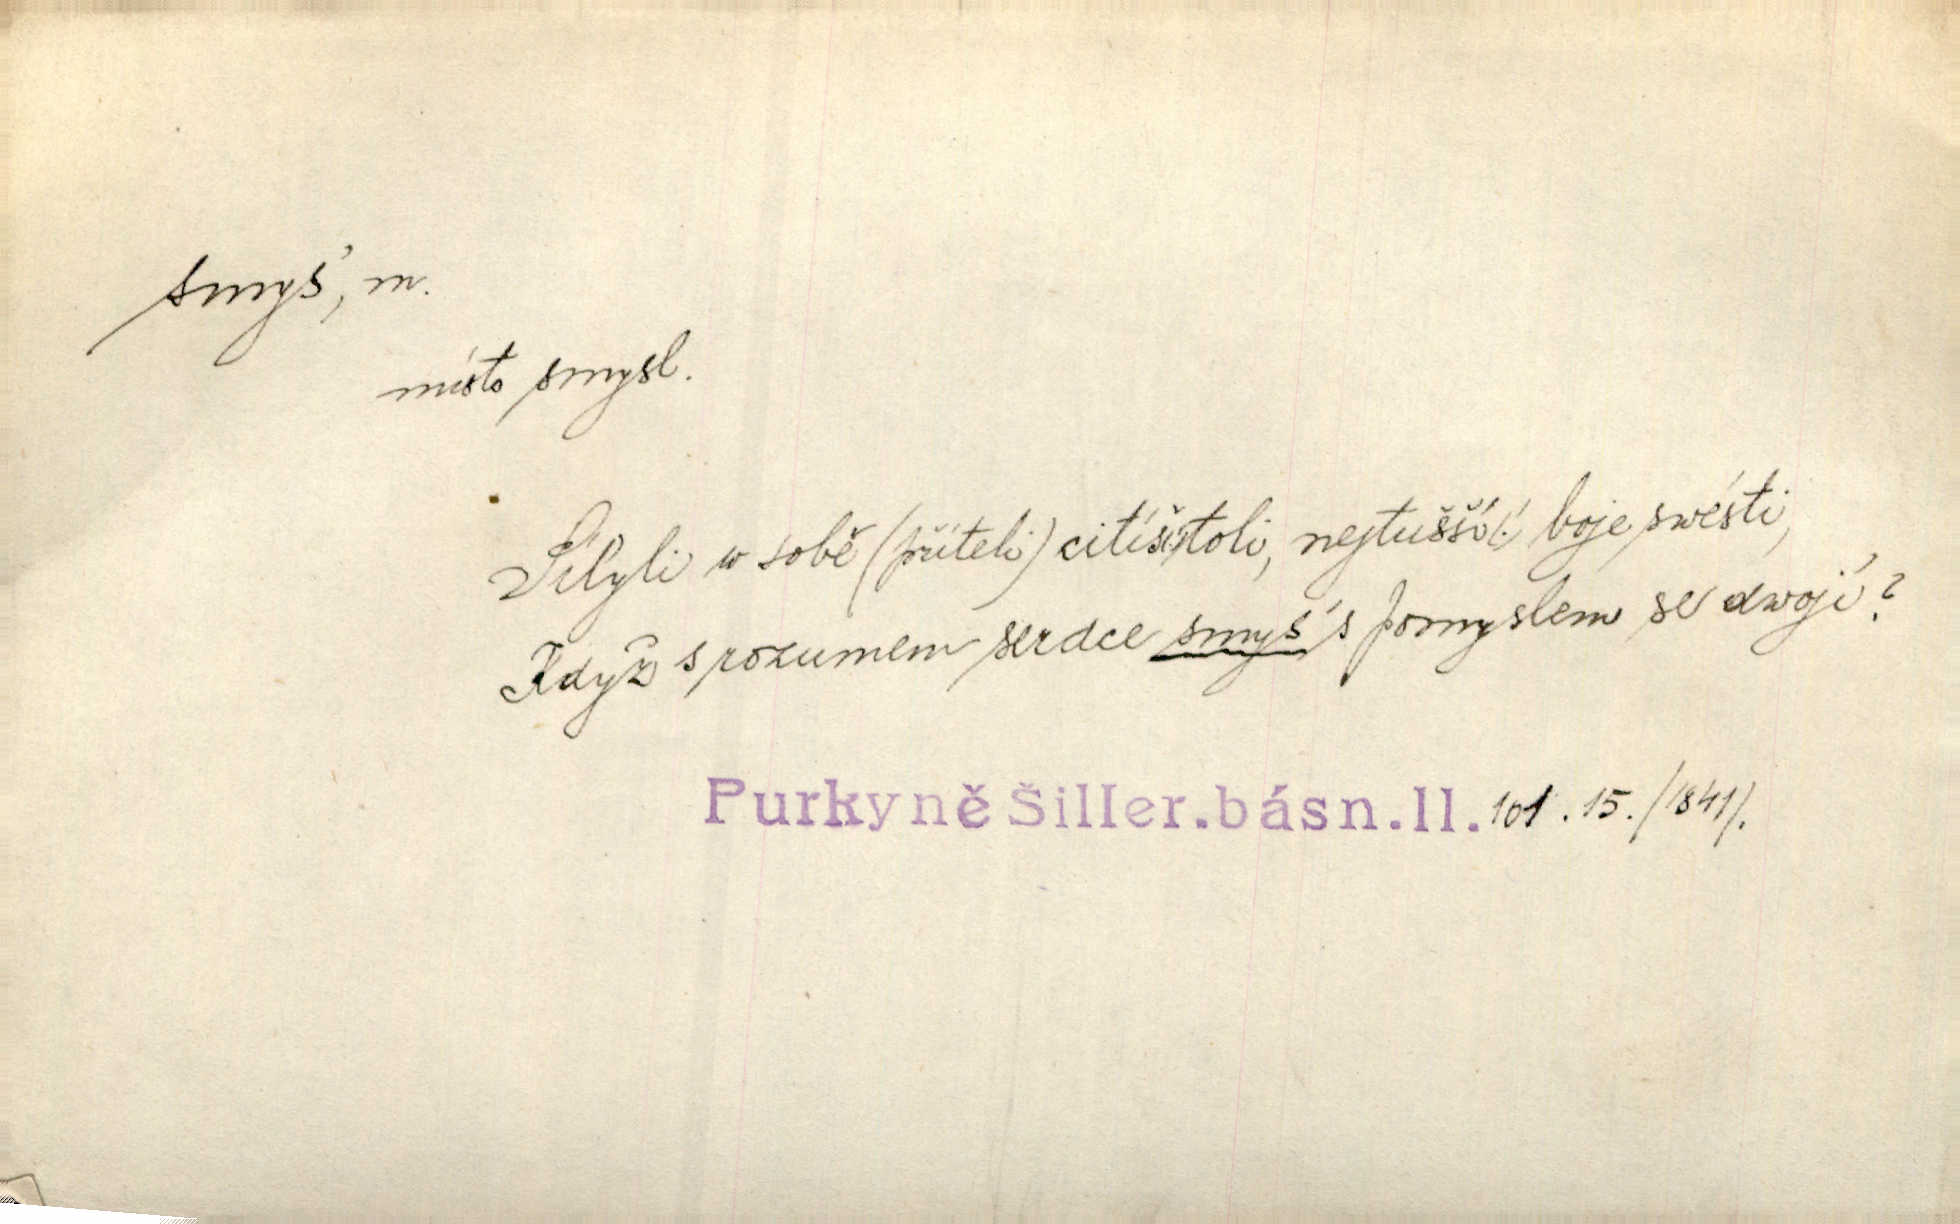 smyś, m.
místo smysl.
Sílyli w sobě (příteli) cítíš, toli, nejtušší (!) boje swésti,
Když s rozumem serdce smyś s pomyslem se dwojí?
Purkyně Šiller. básn. II. 101. 15. /1841/.